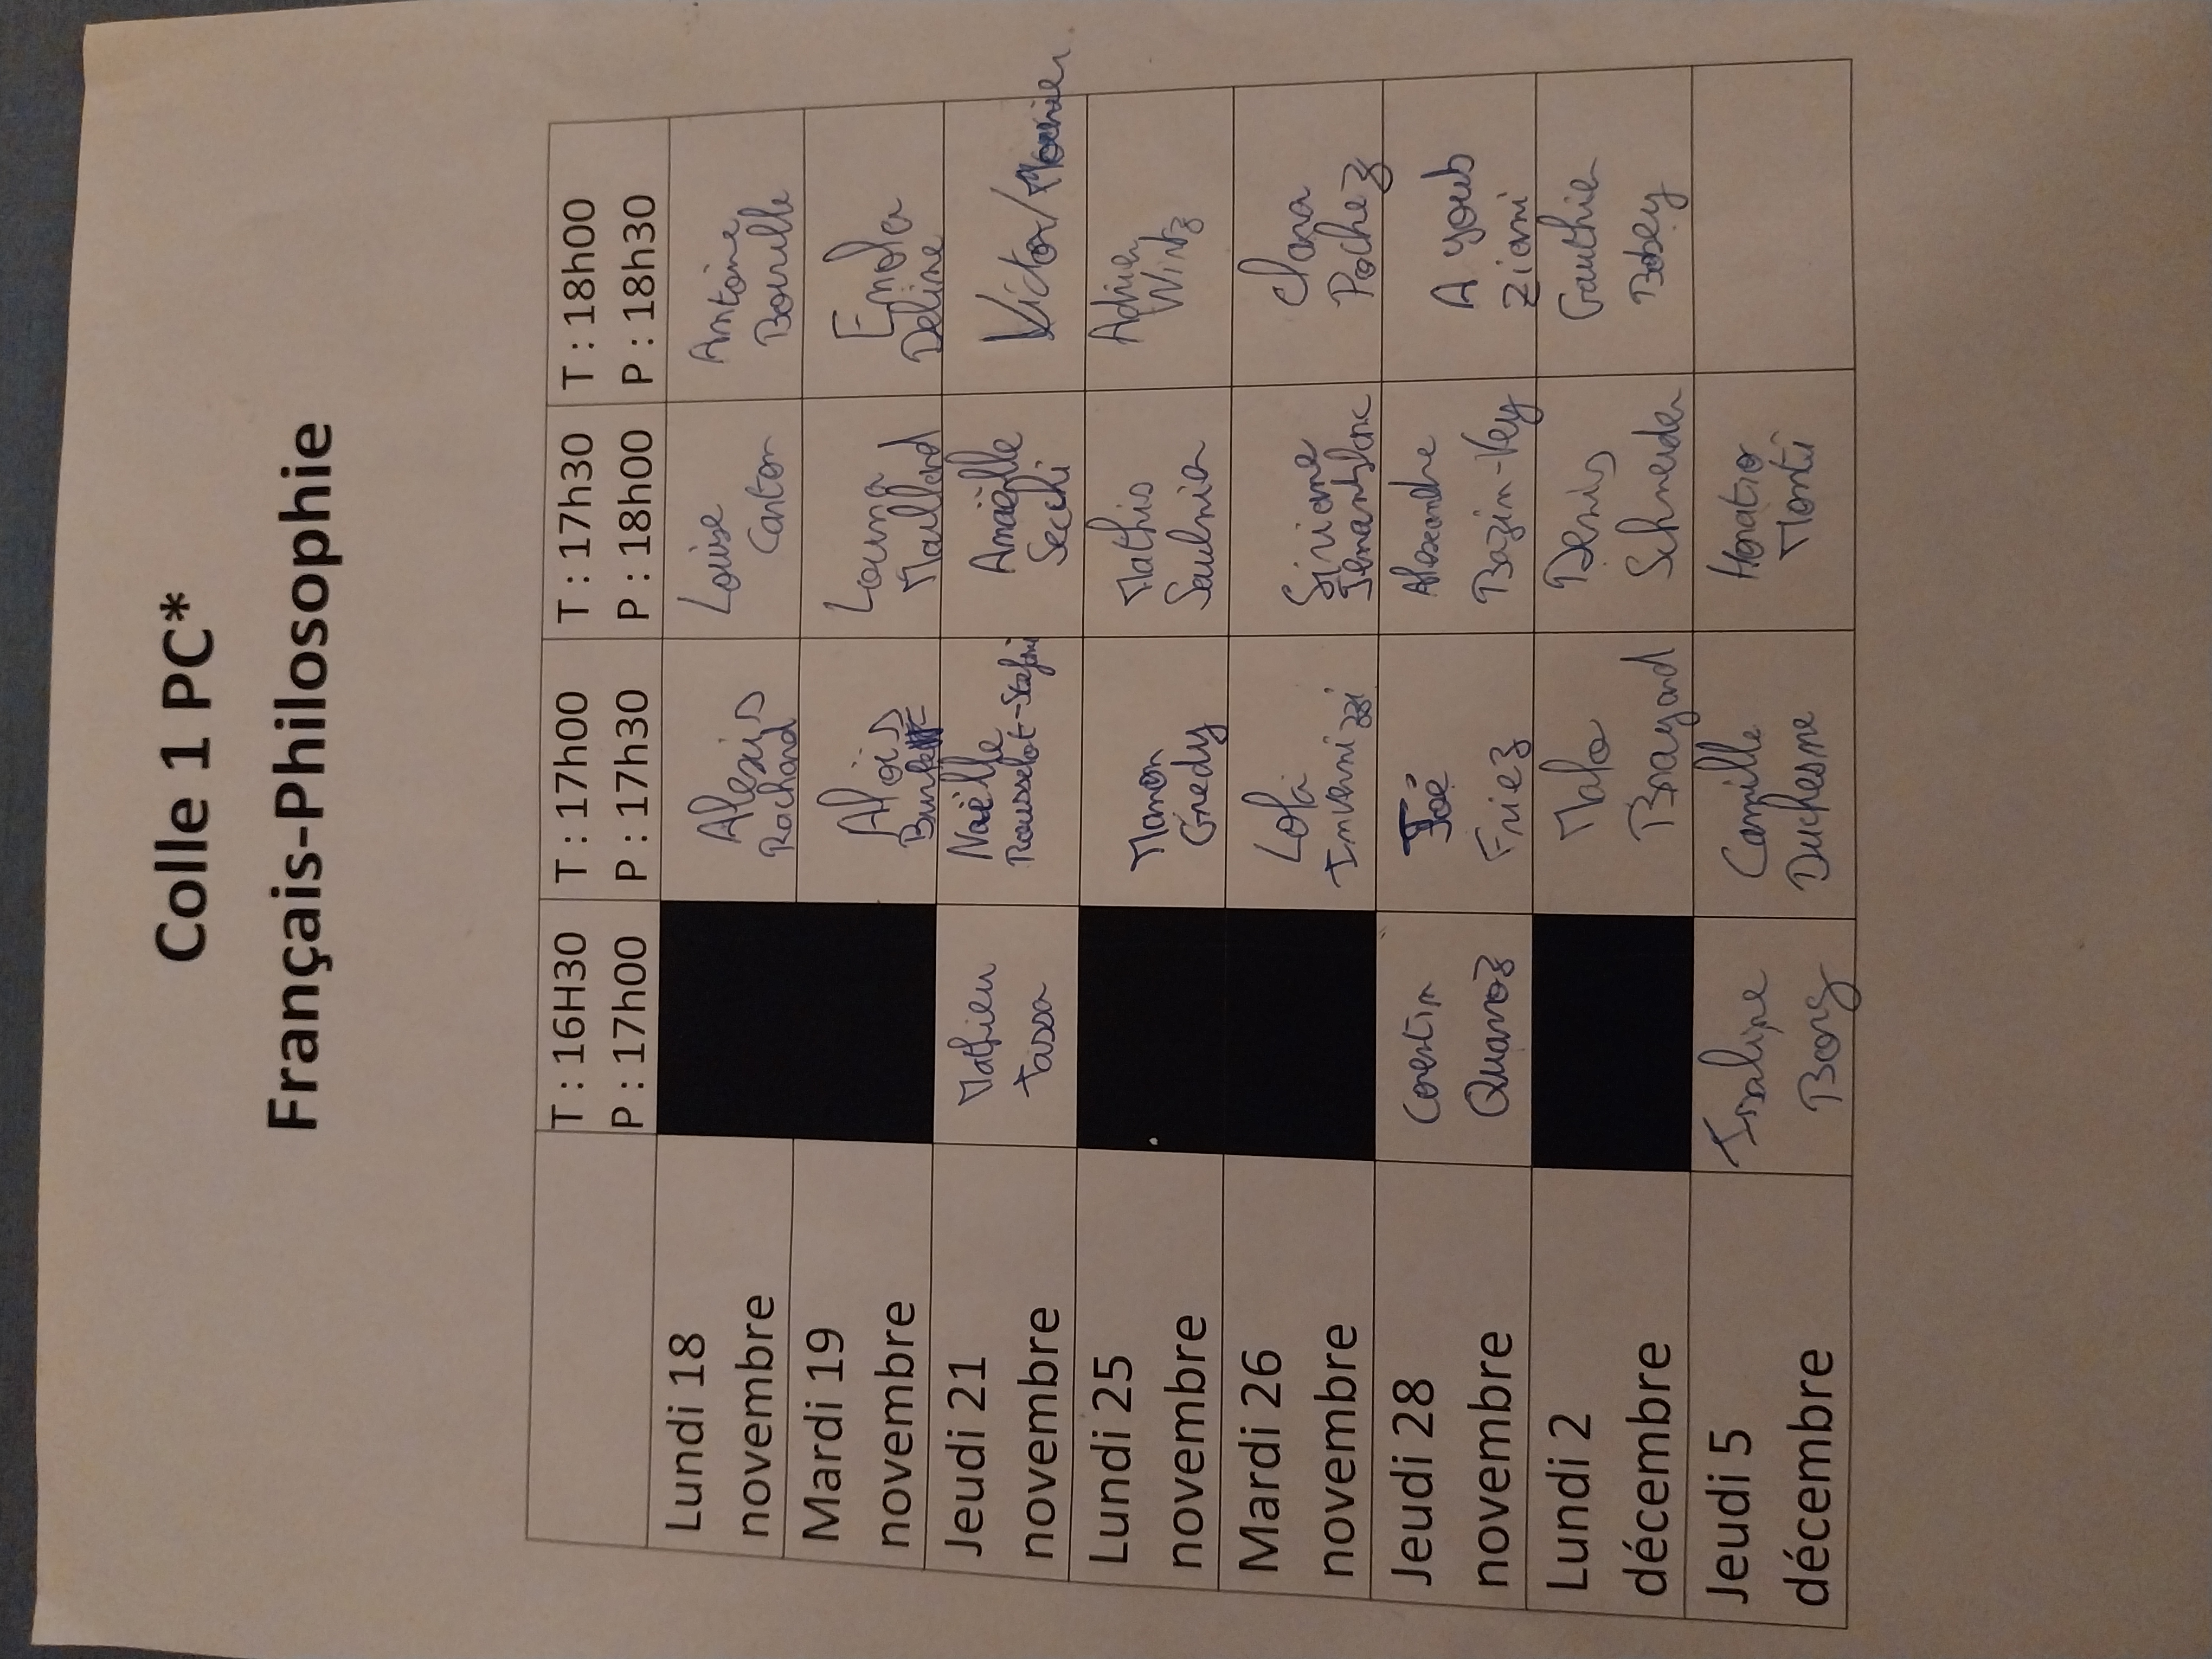 Colle 1 PC*
Français-Philosophie
T : 16H30
P : 17h00
T : 17h00
P : 17h30
T : 17h30
P : 18h00
T : 18h00
P : 18h30
Lundi 18
novembre
Alexis
Rachard
Louise
Canton
Antoine
Bourlle
Mardi 19
novembre
Aloïs
Louna
Maillard
Enola
Deline
Jeudi 21
novembre
Mathieu
Tassa
Naëlle
Rousselot-Stefani
Amaëlle
Secchi
Victor/Morier
Lundi 25
novembre
Manon
Gredy
Mathis
Saulnier
Adrien
Wintz
Mardi 26
novembre
Lola
Invernizzi
Siriane
Jeanblanc
Clara
Pochez
Jeudi 28
novembre
Corentin
Quanoz
Joé
Friez
Alexandre
Bazin-Vey
Ayoub
Ziani
Lundi 2
décembre
Malo
Brayard
Denis
Schneider
Gauthier
Bobey
Jeudi 5
décembre
Issaline
Borg
Camille
Duchesne
Horatio
Monti